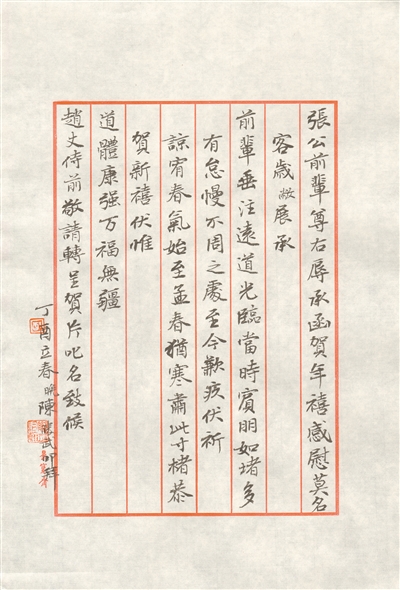 張公前輩尊右辱承函賀年禧感慰莫名
客歲敝展承
前輩垂注遠道光臨當時賓朋如堵多
有怠慢不周之處至今歉疚伏祈
諒宥春氣始至孟春猶寒肅此寸楮恭
賀新禧伏惟
道體康强万福無疆
趙丈侍前敬請轉呈賀片叱名致候
丁酉立春晚陳武卬拜